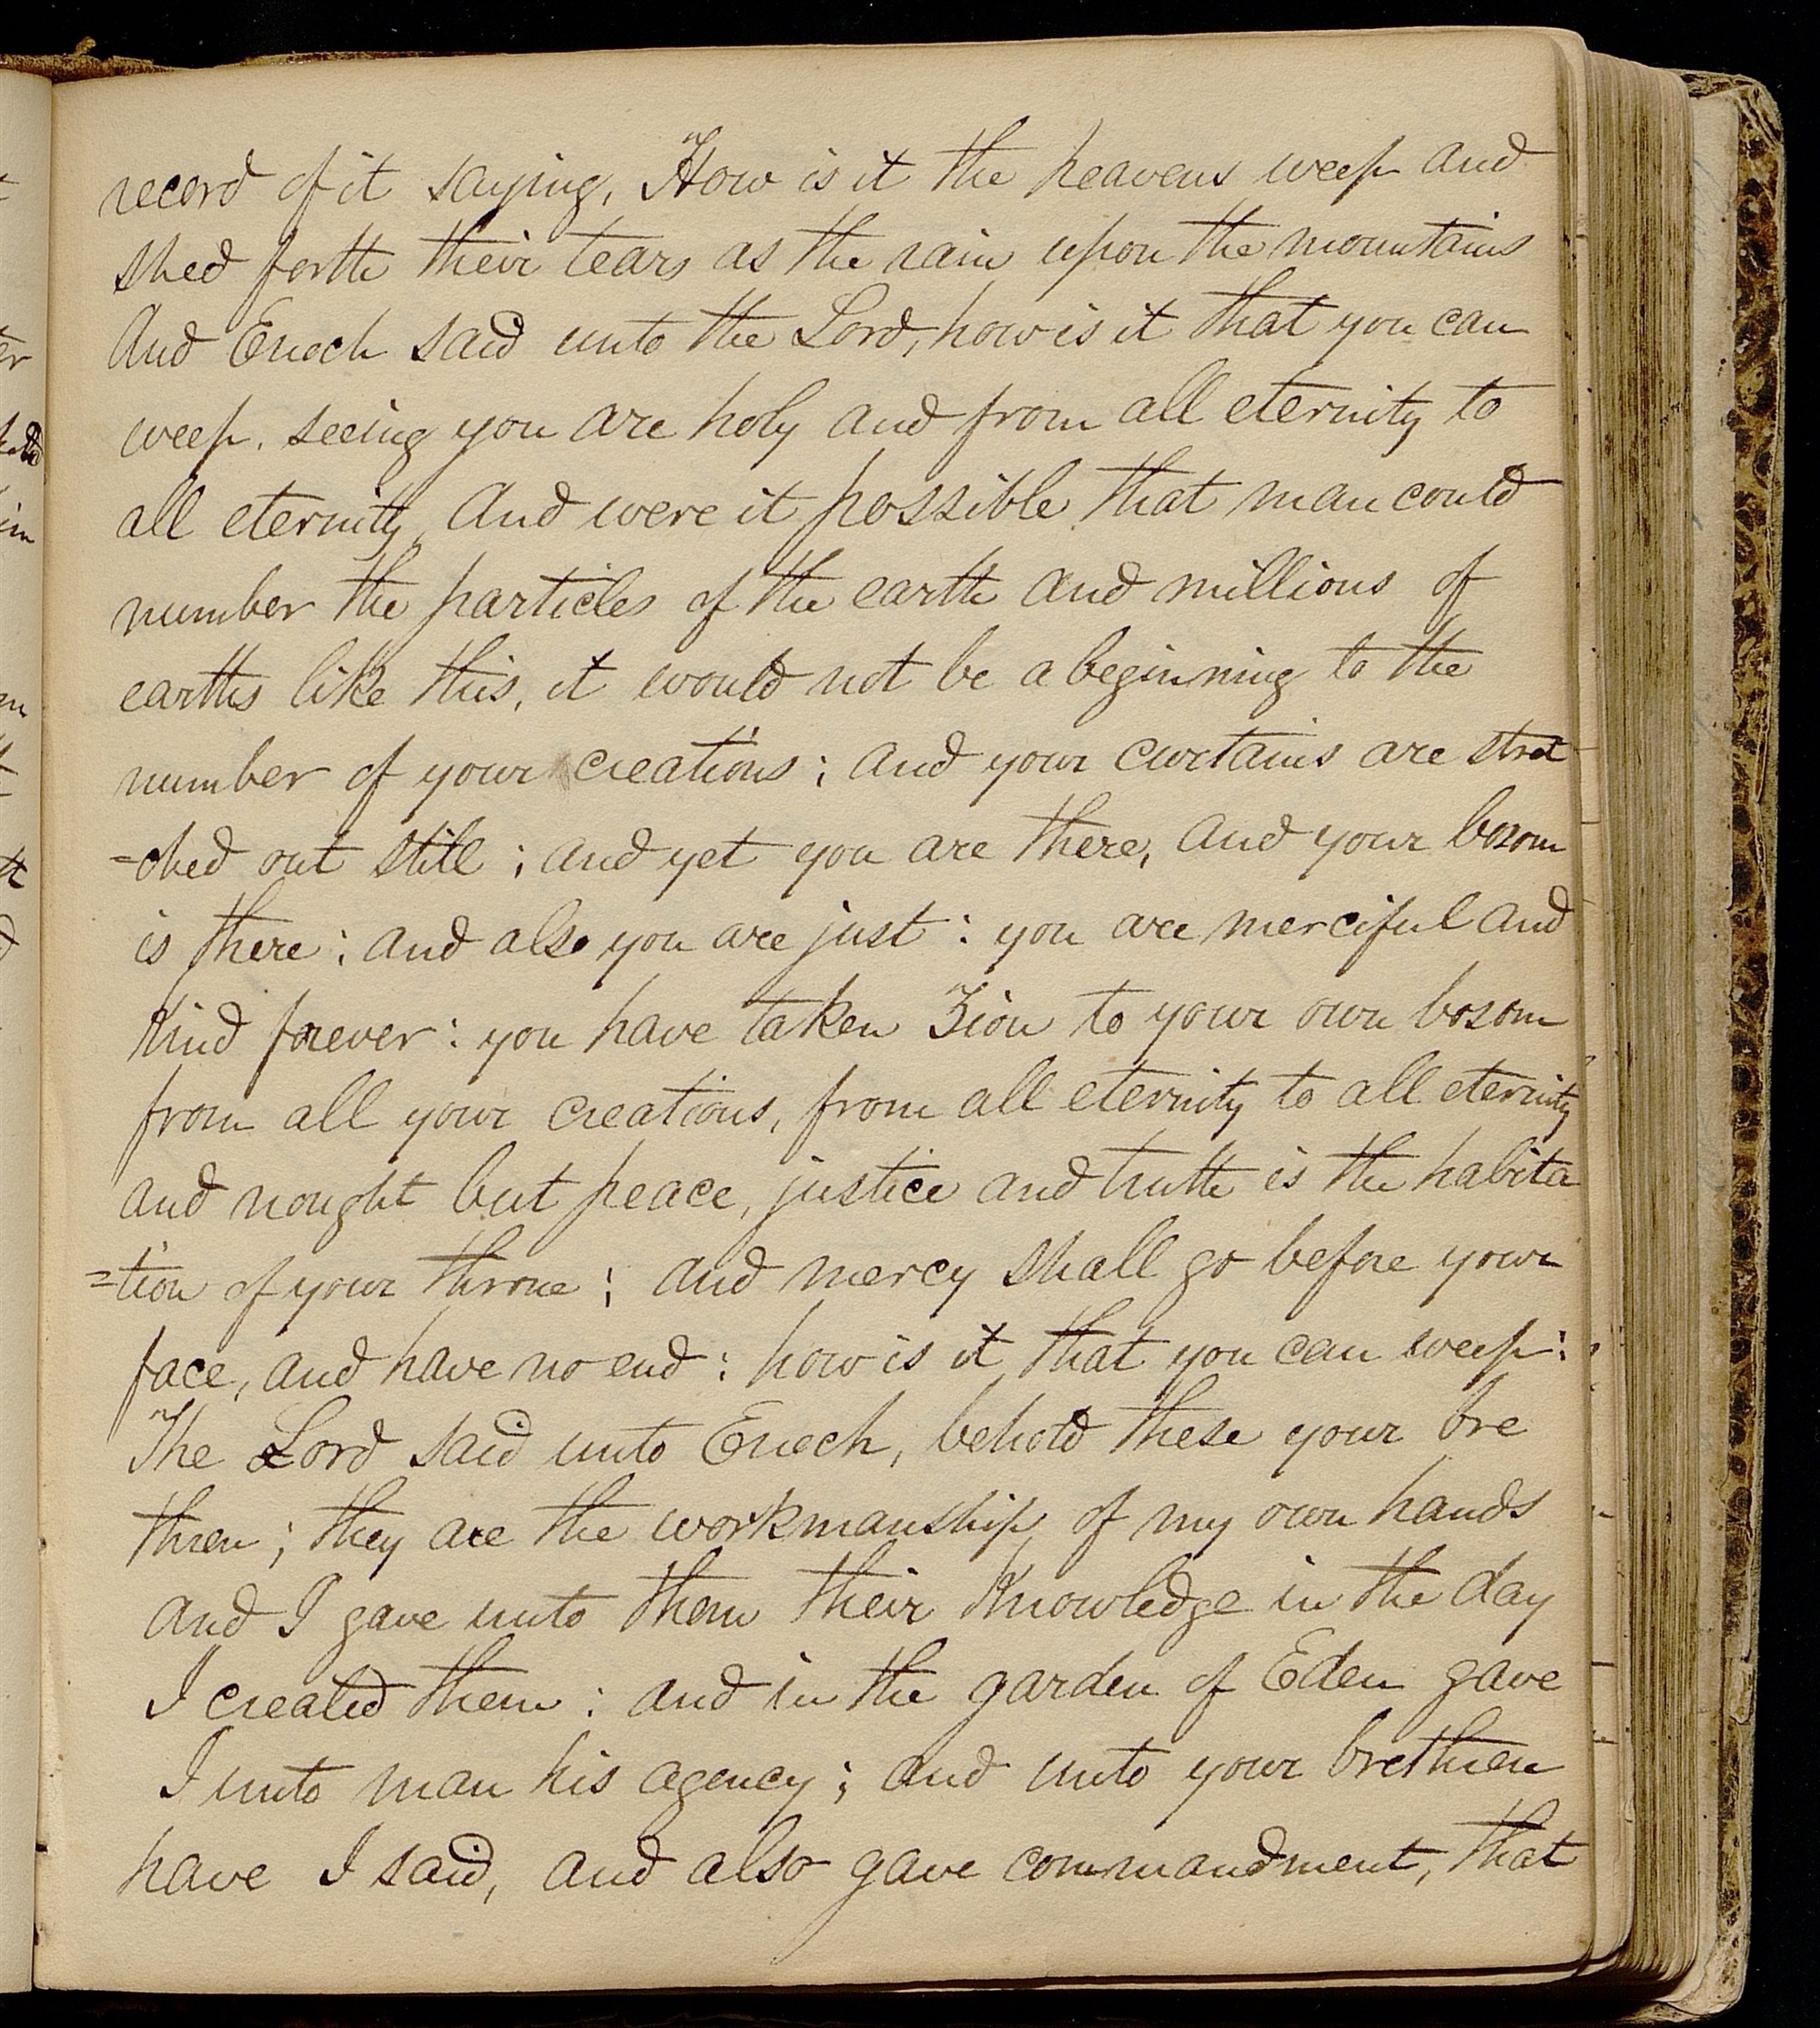 record of it saying, How is it the heavens weep and
shed forth their tears as the rain upon the mountains
And Enoch said unto the Lord, how is it that you can
weep, seeing you are holy and from all eternity to
all eternity, And were it possible that man could
number the particles of the earth and millions of
earths like this, it would not be a beginning to the
number of your creations; and your curtains are stret
=ched out still; and yet you are there, and your bosom
is there; and also you are just: you are merciful and
kind forever: you have taken Zion to your own bosom
from all your creations, from all eternity to all eternity
and nought but peace, justice and truth is the habita
=tion of your throne; and mercy shall go before your
face, and have no end: how is it that you can weep:
The Lord said unto Enoch, behold these your bre
thren; they are the workmanship of my own hands
and I gave unto them their knowledge in the day
I created them: and in the garden of Eden gave
I unto man his agency; and unto your brethren
have I said, and also gave commandment, that